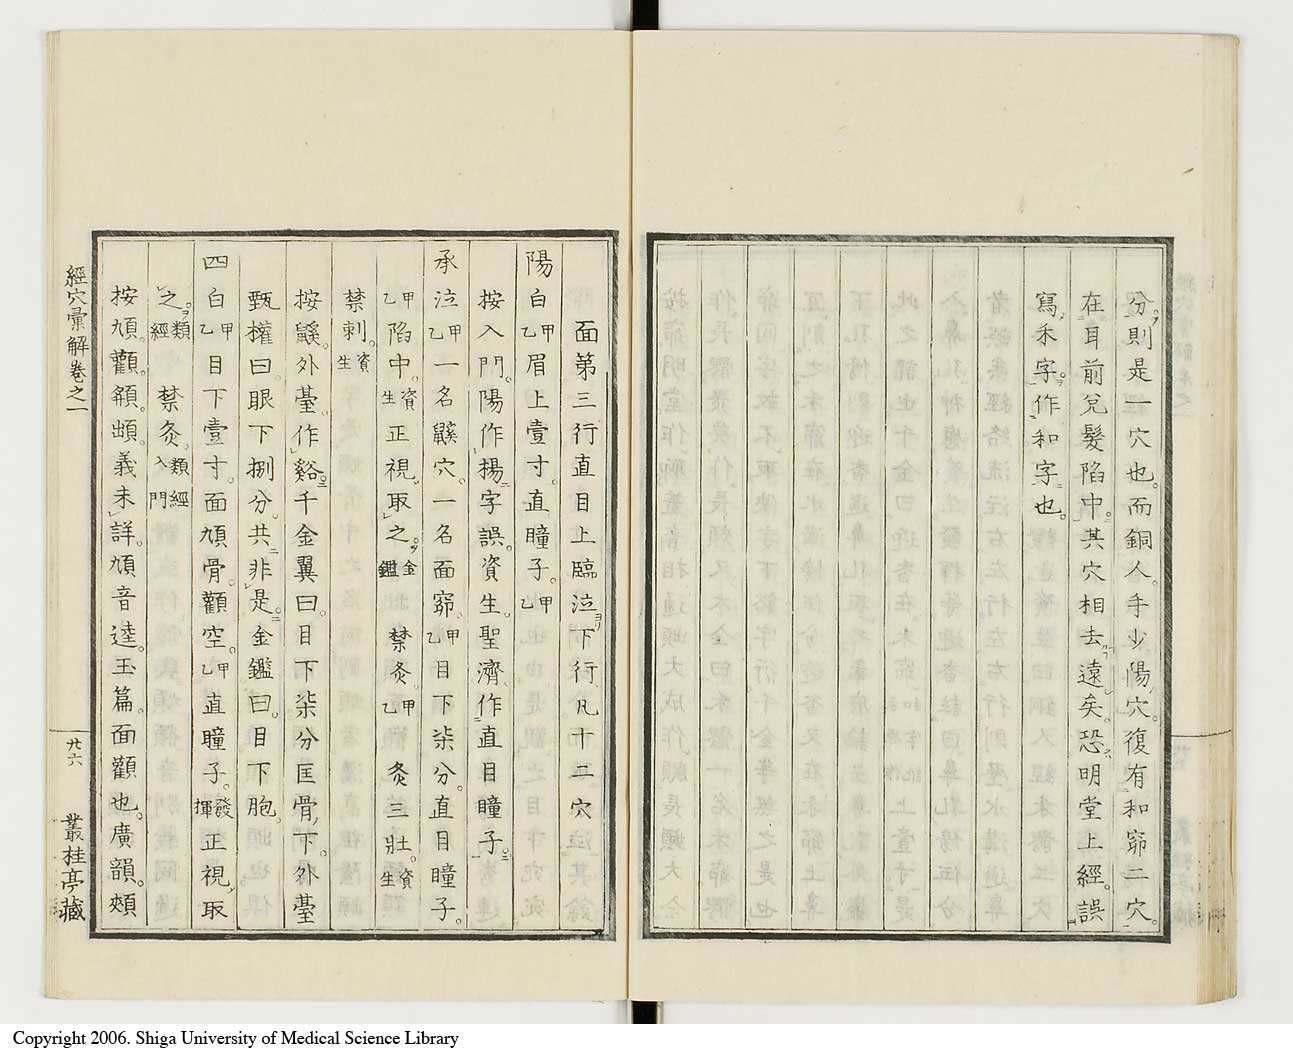 分則是一穴也。而銅人。手少陽穴。復有和窌二穴。
在耳前兌髮陷中。其穴相去遠矣。恐明堂上經。誤
寫禾字。作和字也。
面第三行直目上臨泣下行凡十二穴
陽白甲乙眉上壹寸。直瞳子。甲乙
按入門。陽作楊字誤。資生。聖濟作直目瞳子。
承泣甲乙一名鼷穴。一名面窌。甲乙目下柒分。直目瞳子。
甲乙陷中。資生正視。取之。金鑑禁灸。甲乙灸三壯。資生
禁刺。資生
按鼷。外臺作谿。千金翼曰。目下柒分匡骨下。外臺
甄權曰。眼下捌分。共非是。金鑑曰。目下胞。
四白甲乙目下壹寸。面頄骨。顴空。甲乙直瞳子。發揮正視取
之。類經禁灸。類經入門
按頄。顴。䪼。䪼。義未詳。頄音逵。玉篇。面顴也。廣韻。頰
經穴彙解卷之一
廿六
叢桂亭藏
Copyright 2006. Shiga University of Medical Science Library